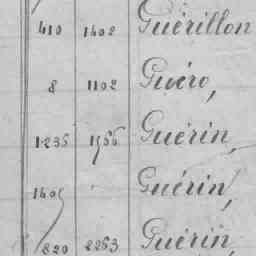 410 1402 Guérillon
8 1102 Guéro,
1235 1566 Guérin,
1405 Guérin,
820 2263 Guérin,